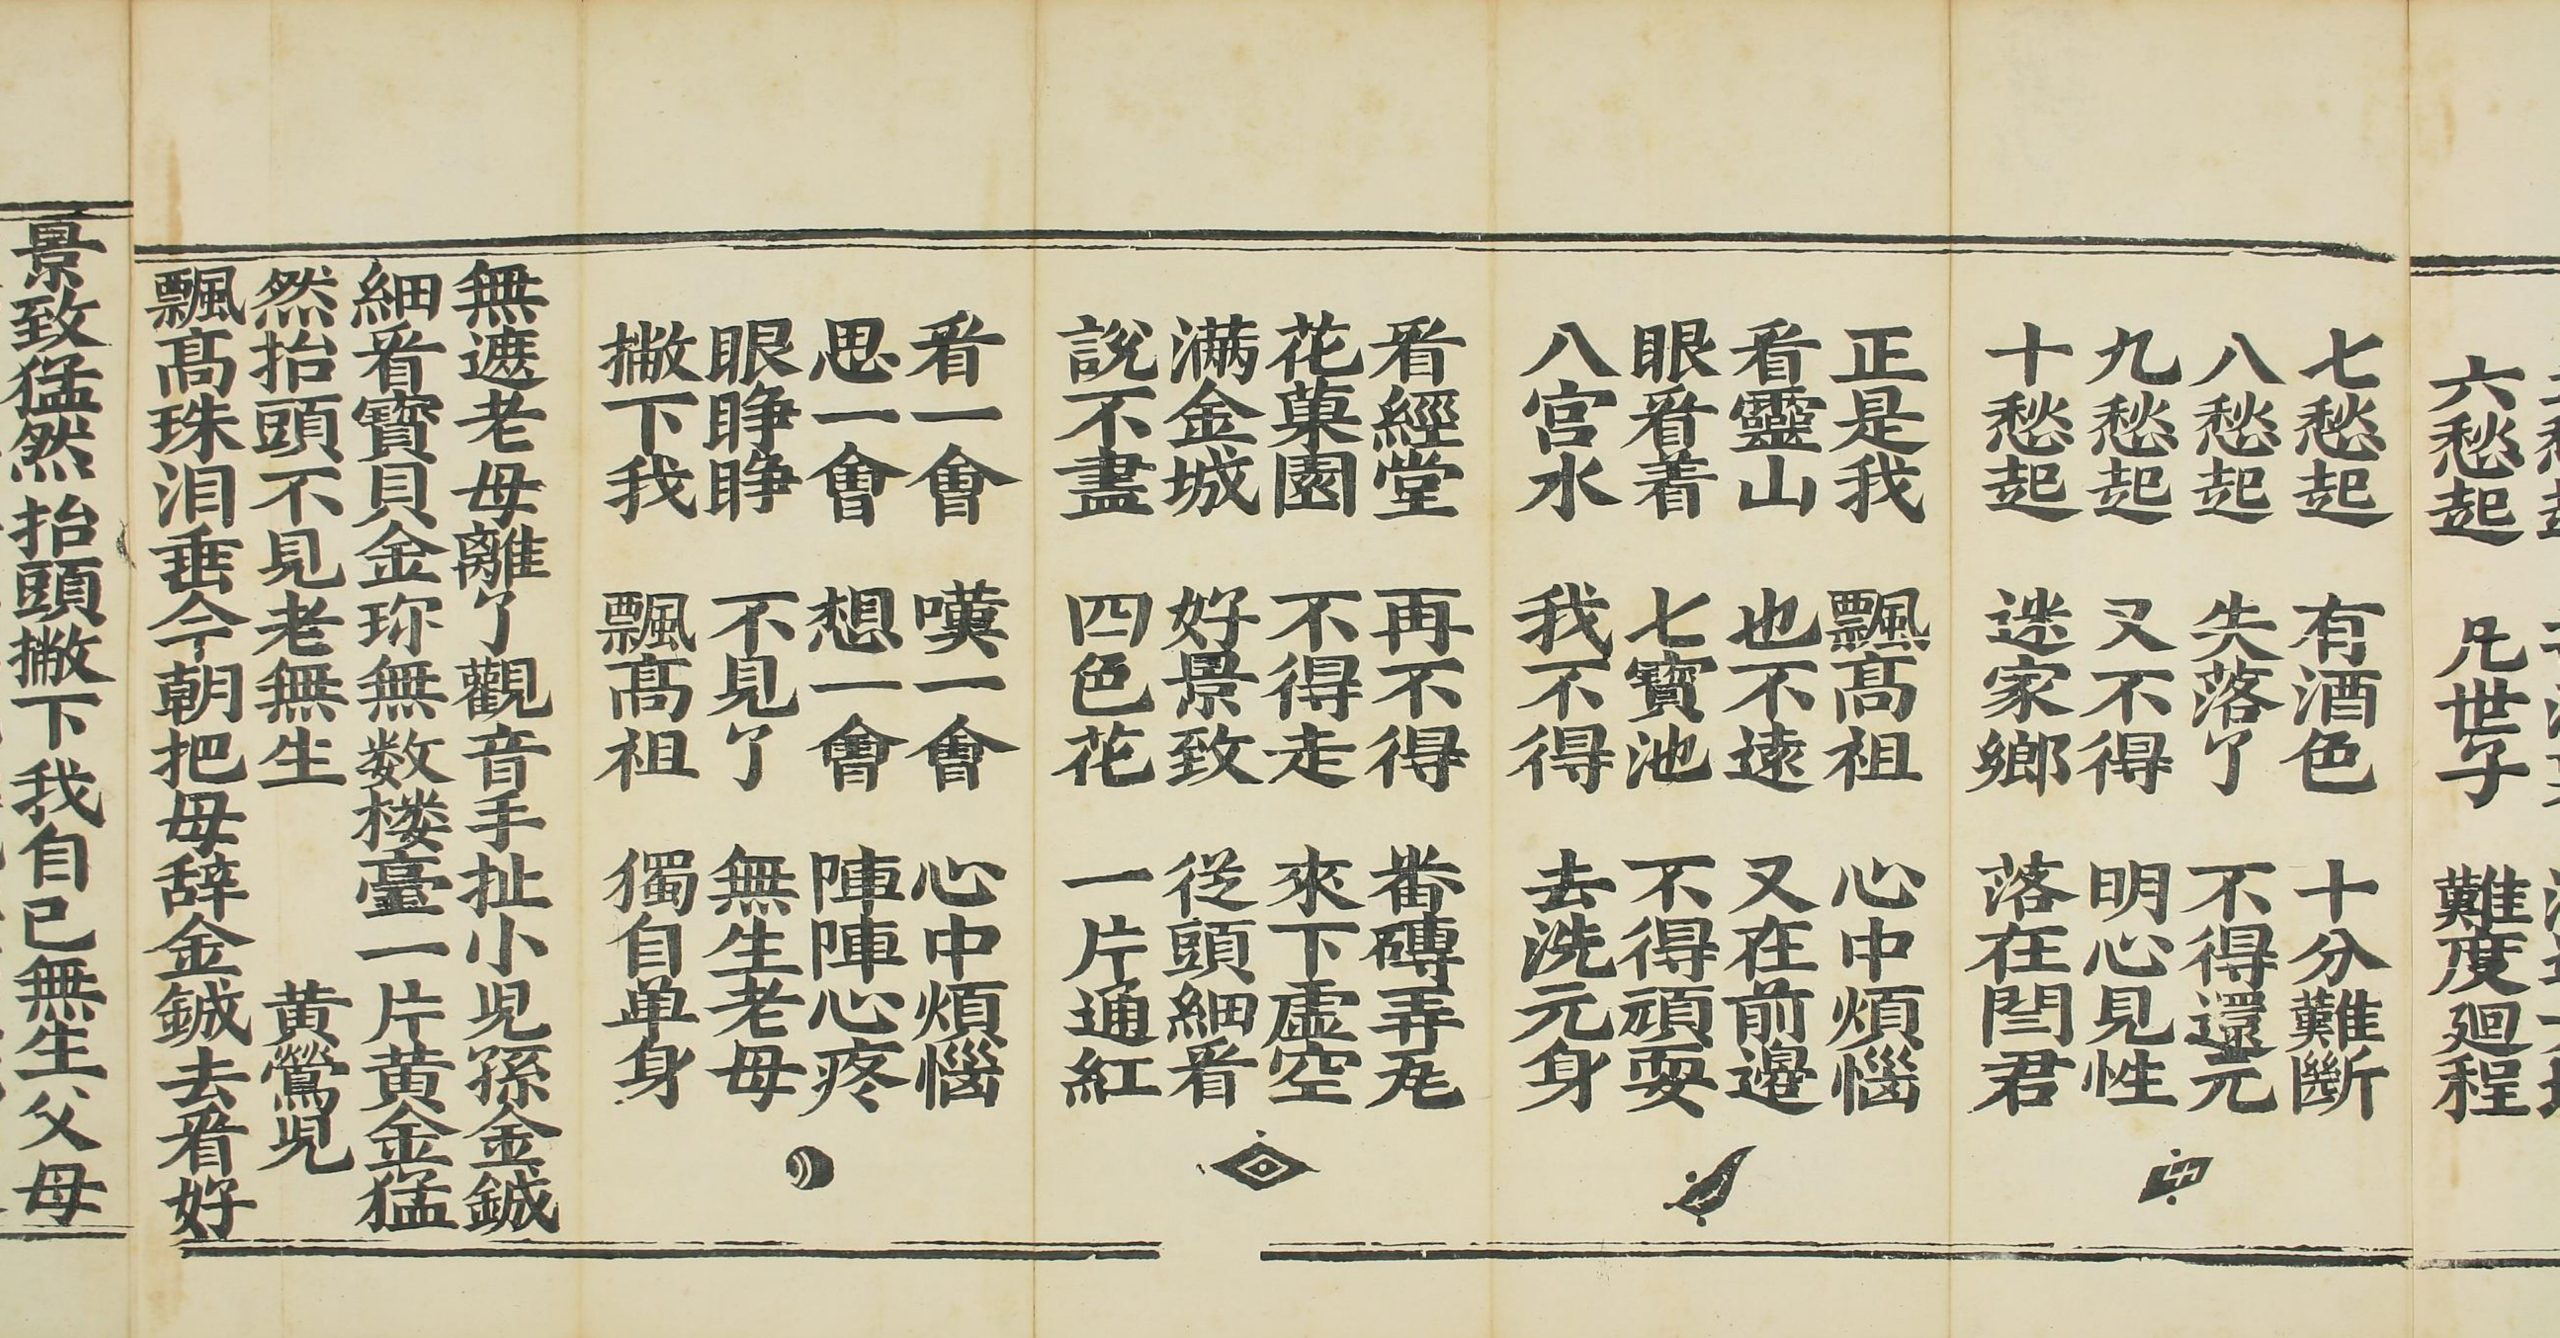 六愁起 凡世子 難度廻程
七愁起 有酒色 十分難斷
八愁起 失落了 不得還元
九愁起 又不得 明心見性
十愁起 迷家鄉 落在閆君
正是我 飄髙祖 心中煩惱
看靈山 也不遠 又在前邊
眼看着 七寶池 不得頑耍
八宮水 我不得 去洗元身
看經堂 再不得 番磚弄瓦
花菓園 不得走 來下虛空
滿金城 好景致 從頭細看
說不盡 四色花 一片通紅
看一會 嘆一會 心中煩惱
思一會 想一會 陣陣心疼
眼睜睜 不見了 無生老母
撇下我 飄髙祖 獨自单身
無遮老母離了觀音手扯小児孫金鋮
細看寶貝金珎無数楼臺一片黄金猛
然抬頭不見老無生 黄鶯児
飄髙珠泪垂今朝把母辞金鋮去看好
景致猛然抬頭撇下我自己無生父母